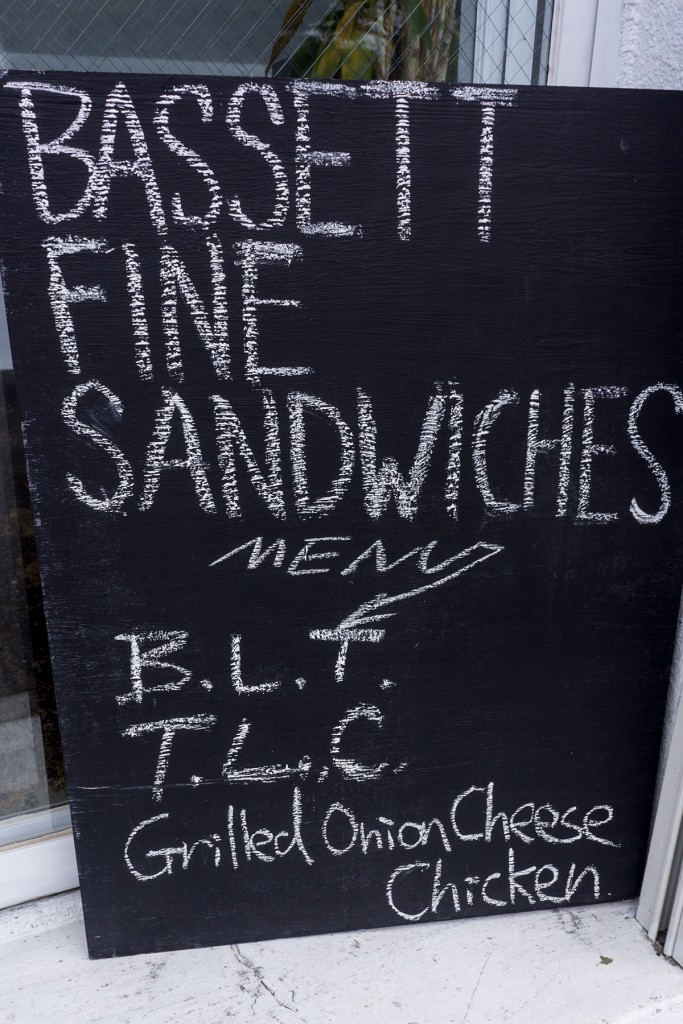 BASSETT
FINE
SANDWICHES
MENU
B.L.T.
T.L.C.
Grilled Onion Cheese
Chicken